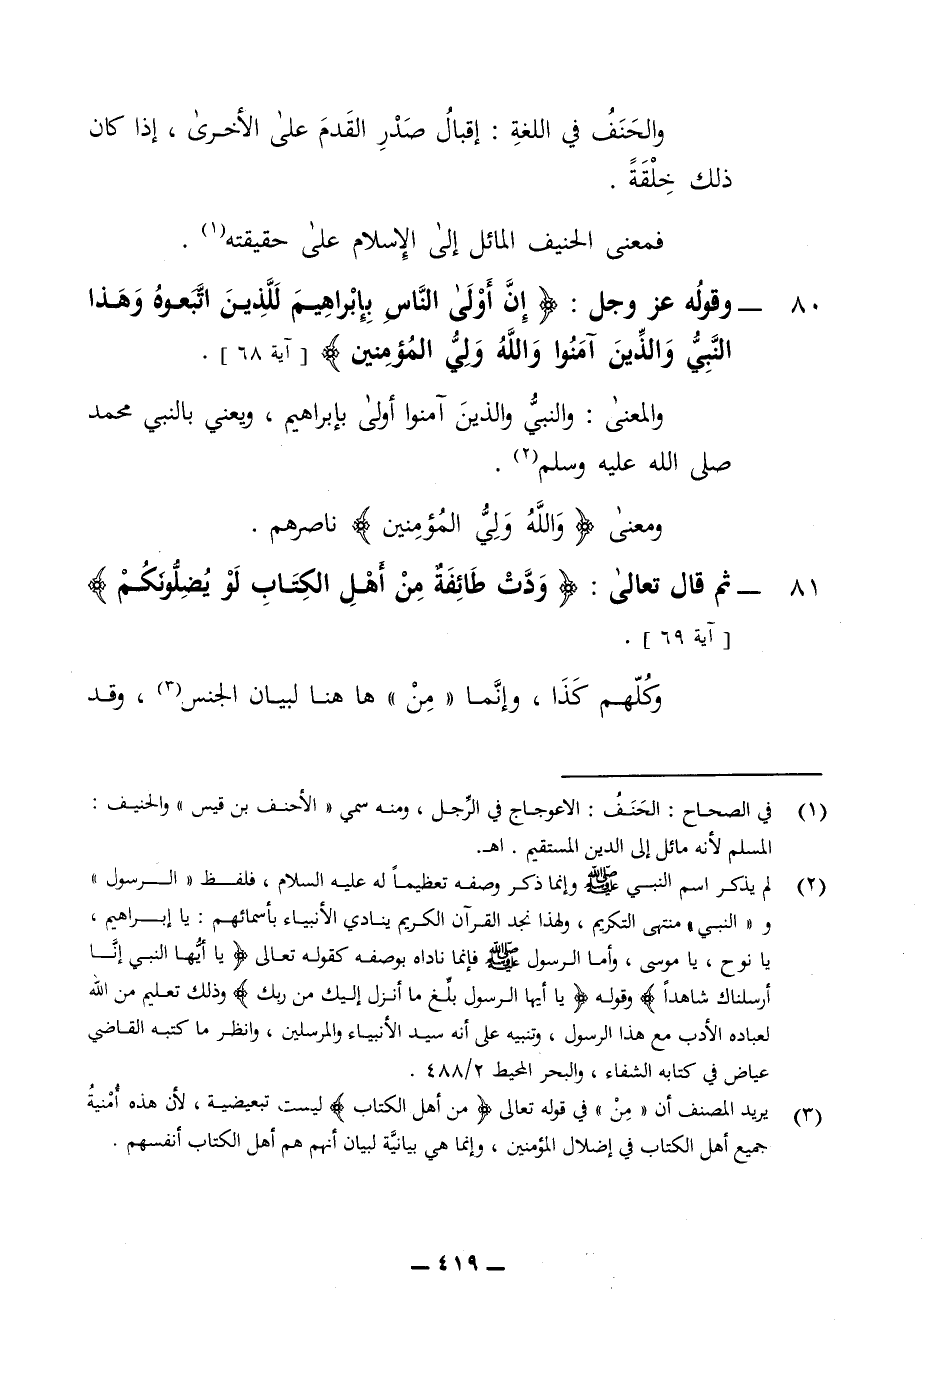 والحَنَفُ في اللغةِ : إقبالُ صَدْرِ القَدمَ علىٰ الأخـرىٰ ، إذا كان
ذلك خِلْقَةً .
فمعنى الحنيف المائل إلىٰ الإِسلام علىٰ حقيقته(١) .
٨٠ ــ وقولُه عز وجل : ﴿ إِنَّ أَوْلَىٰ النَّاسِ بِإِبْراهِيـمَ لَلَّذِيـنَ اتَّبَعـوهُ وَهَـذا
النَّبِيُّ وَالَّذِينَ آمَنُوا وَاللَّهُ وَلِيُّ المُؤمِنين ﴾ [ آية ٦٨ ] .
والمعنىٰ : والنبيُّ والذينَ آمنوا أولىٰ بإبراهيم ، ويعني بالنبي محمد
صلى الله عليه وسلم(٢) .
ومعنىٰ ﴿ وَاللَّهُ وَلِيُّ المُؤمِنين ﴾ ناصرهم .
٨١ ــ ثم قال تعالىٰ : ﴿ وَدَّتْ طَائِفَةٌ مِنْ أَهْـلِ الكِتَـابِ لَوْ يُضِلُّونَكُـمْ ﴾
[ آية ٦٩ ] .
وكُلّهـم كَذَا ، وإنَّمـا « مِنْ » ها هنـا لبيـان الجنس(٣) ، وقـد
(١) في الصحـاح : الحَنَفُ : الاعوجـاج في الرِّجل ، ومنـه سمي « الأحنـف بن قيس » والحنيـف :
المسلم لأنه مائل إلى الدين المستقيم . اهـ.
(٢) لم يذكـر اسم النبـي ﷺ وإنما ذكـر وصفـه تعظيمـاً له عليـه السلام ، فلفـظ « الـرسول »
و « النبـي » منتهى التكريم ، ولهذا نجد القرآن الكريم ينادي الأنبيـاء بأسمائهـم : يا إبـراهيم ،
يا نوح ، يا موسى ، وأمـا الـرسول ﷺ فإنما ناداه بوصفـه كقولـه تعـالى ﴿ يا أيُّها النبـي إنَّـا
أرسلناك شاهداً ﴾ وقولـه ﴿ يا أيها الرسول بلِّـغ ما أنـزل إليك من ربك ﴾ وذلك تعليم من الله
لعباده الأدب مع هذا الرسول ، وتنبيه على أنه سيـد الأنبيـاء والمرسلين ، وانظـر ما كتبـه القـاضي
عياض في كتابه الشفاء ، والبحر المحيط ٤٨٨/٢ .
(٣) يريد المصنف أن « مِنْ » في قوله تعالى ﴿ من أهل الكتاب ﴾ ليست تبعيضيـة ، لأن هذه أُمْنيةُ
جميع أهل الكتاب في إضلال المؤمنين ، وإنما هي بيانيَّة لبيان أنهم هم أهل الكتاب أنفسهم .
ــ ٤١٩ ــ